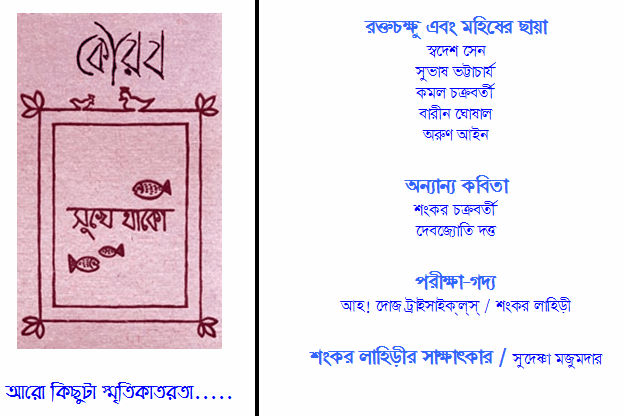 কৌরব
সুখে থাকো
আরো কিছুটা স্মৃতিকাতরতা.....
রক্তচক্ষু এবং মহিষের ছায়া
স্বদেশ সেন
সুভাষ ভট্টাচার্য
কমল চক্রবর্তী
বারীন ঘোষাল
অরুণ আইন
অন্যান্য কবিতা
শংকর চক্রবর্তী
দেবজ্যোতি দত্ত
পরীক্ষা-গদ্য
আহ! দোজ ট্রাইসাইক্‌ল্‌স্‌ / শংকর লাহিড়ী
শংকর লাহিড়ীর সাক্ষাৎকার / সুদেষ্ণা মজুমদার